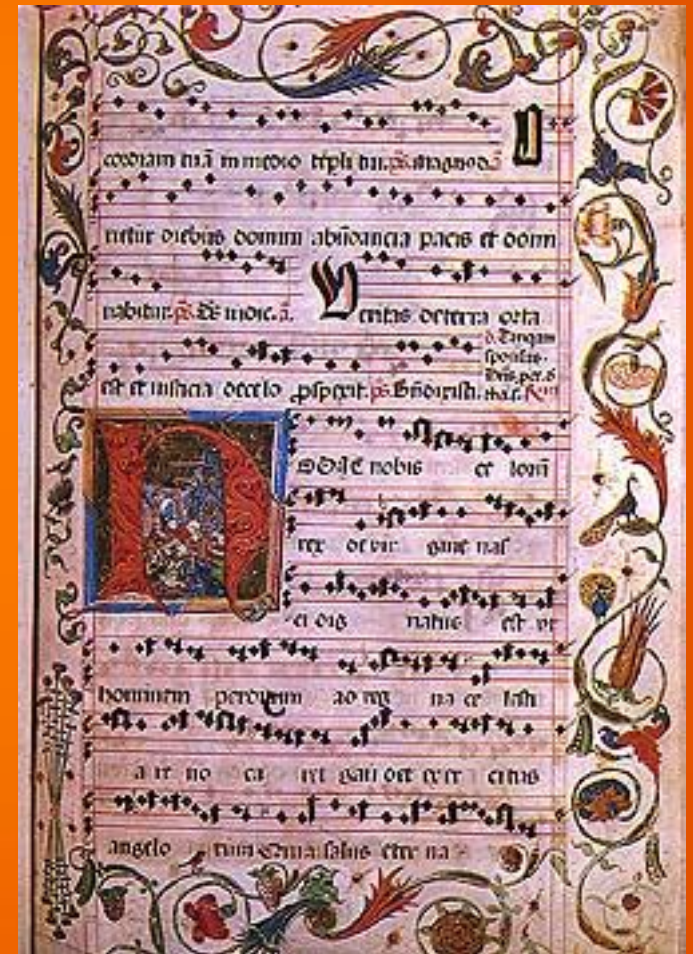 cordiam tuā in medio tēpli tui. ps. magnus
O
rietur diebus domini abūdancia pacis et domi
nabitur. ps. Ds iudic. a. Veritas de terra orta
Tanqam
sponsus.
est et iusticia de celo pspexit. ps.
HODIE nobis ce lorū
rex de vir gine nas
ci dig natus est vt
hominem perditum ad reg na ce lesti
a re uo ca ret gau det exer citus
angelo rum Quia salus eter na